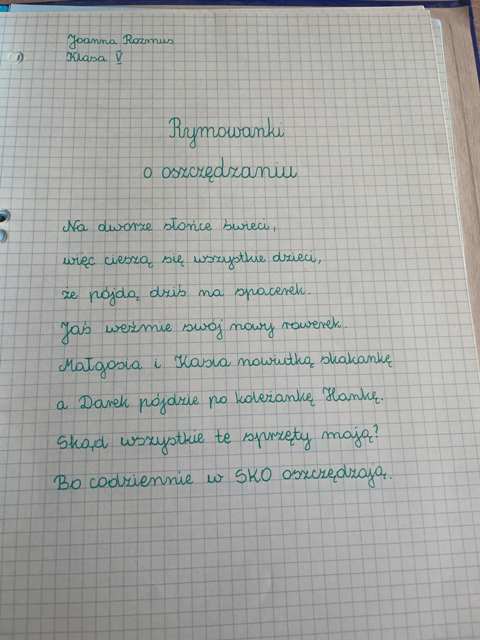 Joanna Rozmus
Klasa V
Rymowanki
o oszczędzaniu
Na dworze słońce świeci,
więc cieszą się wszystkie dzieci,
że pójdą dziś na spacerek.
Jaś weźmie swój nowy rowerek.
Małgosia i Kasia nowiutką skakankę
a Darek pójdzie po koleżankę Hankę.
Skąd wszystkie te sprzęty mają?
Bo codziennie w SKO oszczędzają.